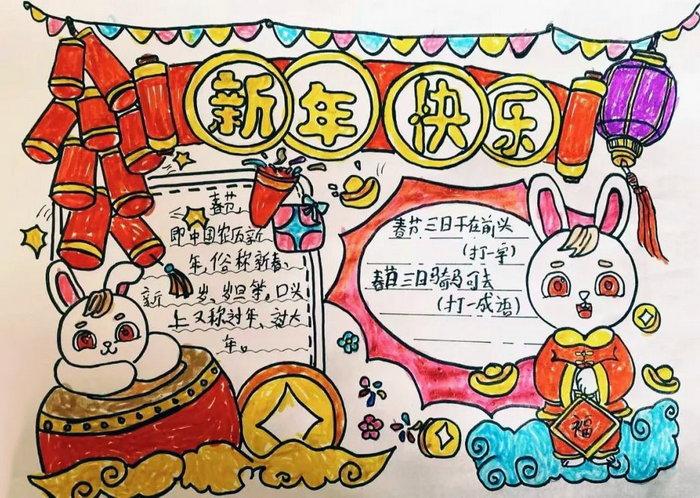 新年快乐
春节
即中国农历新
年,俗称新春、
新岁、岁旦等,口头
上又称过年、过大
年。
春节三日干在前头
(打一字)
春节三日骑马可去
(打一成语)
福